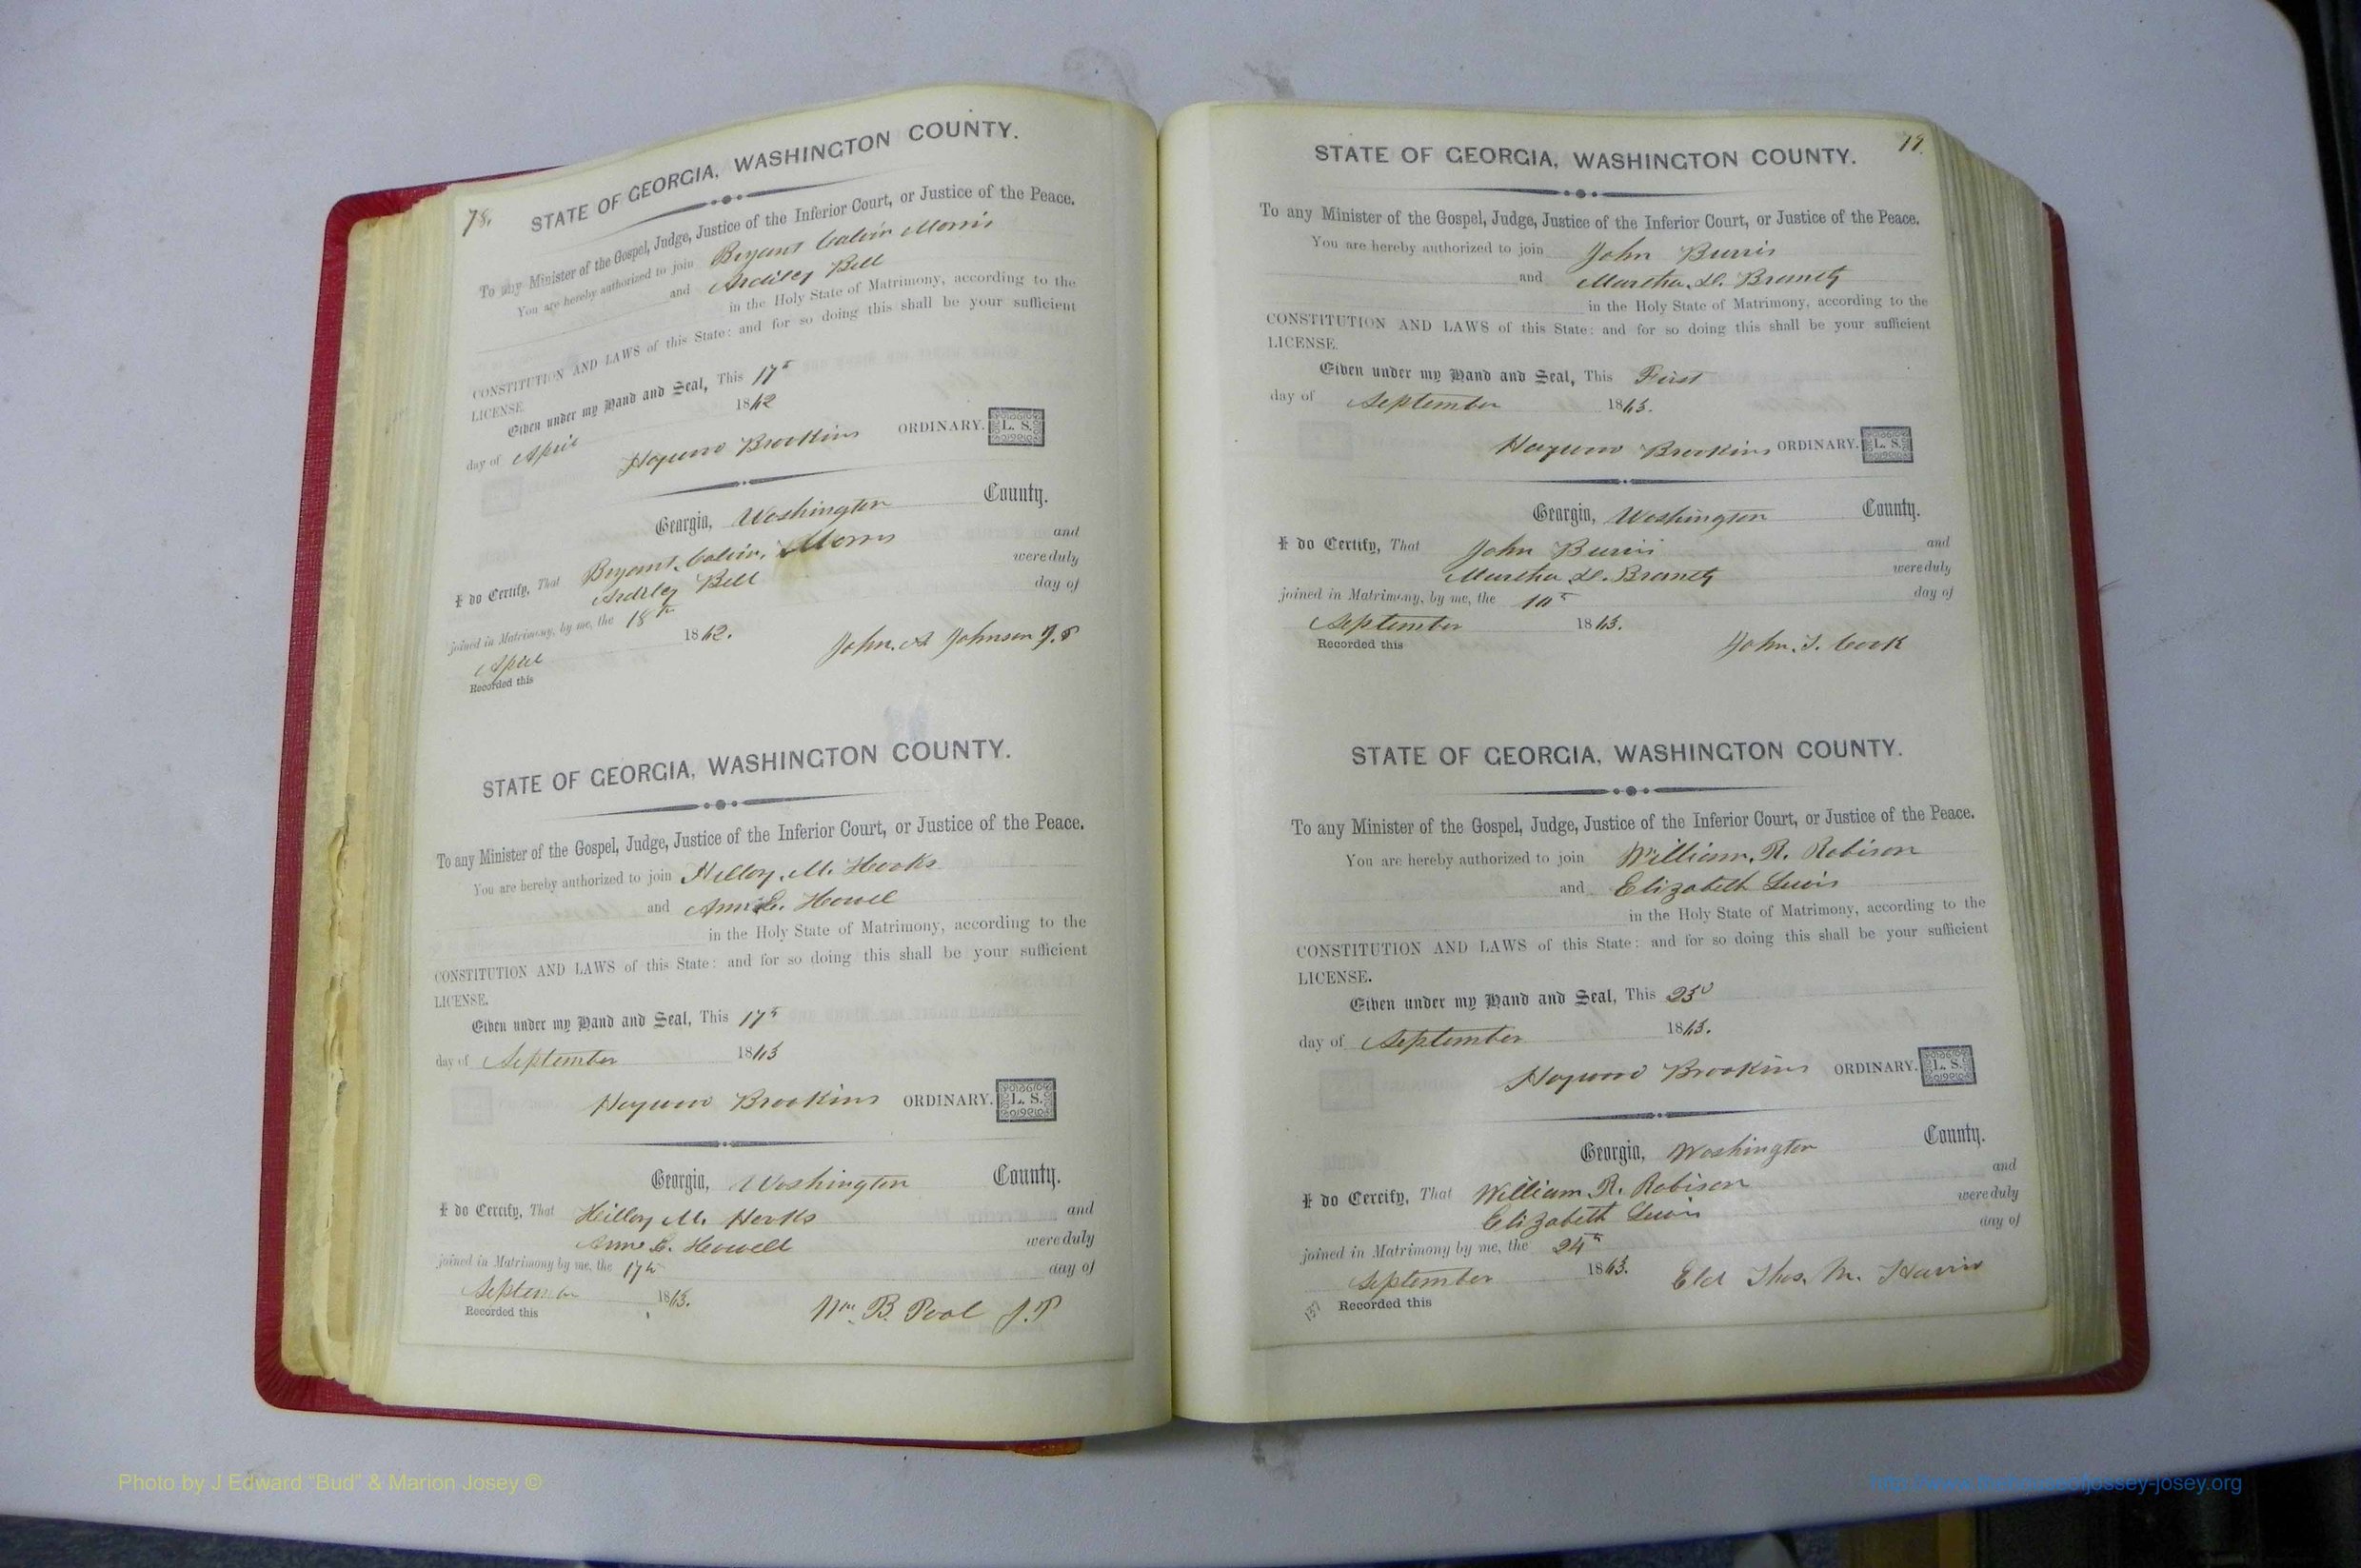 78.
STATE OF GEORGIA, WASHINGTON COUNTY.
To any Minister of the Gospel, Judge, Justice of the Inferior Court, or Justice of the Peace.
You are hereby authorized to join Bryant Calvin Morris
and Ardiley Bell
in the Holy State of Matrimony, according to the
CONSTITUTION AND LAWS of this State: and for so doing this shall be your sufficient
LICENSE.
Given under my Hand and Seal, This 17th
day of April 1862
Haywood Brookins ORDINARY. L. S.
Georgia, Washington County.
I do Certify, That Bryant Calvin Morris and
Ardiley Bell were duly
joined in Matrimony, by me, the 18th day of
April 1862. John A Johnson J.P
Recorded this
STATE OF GEORGIA, WASHINGTON COUNTY.
To any Minister of the Gospel, Judge, Justice of the Inferior Court, or Justice of the Peace.
You are hereby authorized to join M. Hooks
and Ann E. Howel
in the Holy State of Matrimony, according to the
CONSTITUTION AND LAWS of this State: and for so doing this shall be your sufficient
LICENSE.
Given under my Hand and Seal, This 17th
day of September 1863
Haywood Brookins ORDINARY. L. S.
Georgia, Washington County.
I do Certify, That M. Hooks and
Anne E. Howell were duly
joined in Matrimony by me, the 17th day of
September 1863. Wm. B. Pool J.P
Recorded this
79.
STATE OF GEORGIA, WASHINGTON COUNTY.
To any Minister of the Gospel, Judge, Justice of the Inferior Court, or Justice of the Peace.
You are hereby authorized to join John Burris
and Martha
in the Holy State of Matrimony, according to the
CONSTITUTION AND LAWS of this State: and for so doing this shall be your sufficient
LICENSE.
Given under my Hand and Seal, This First
day of September 1863.
Haywood Brookins ORDINARY. L. S.
Georgia, Washington County.
I do Certify, That John Burris and
Martha were duly
joined in Matrimony, by me, the 10th day of
September 1863. John. T. Cook
Recorded this
STATE OF GEORGIA, WASHINGTON COUNTY.
To any Minister of the Gospel, Judge, Justice of the Inferior Court, or Justice of the Peace.
You are hereby authorized to join William. R. Robison
and Elizabeth Lewis
in the Holy State of Matrimony, according to the
CONSTITUTION AND LAWS of this State: and for so doing this shall be your sufficient
LICENSE.
Given under my Hand and Seal, This 23d
day of September 1863.
Haywood Brookins ORDINARY. L. S.
Georgia, Washington County.
I do Cercify, That William. R. Robison and
Elizabeth Lewis were duly
joined in Matrimony by me, the 24th day of
September 1863. Eld Thos. M. Harris
Recorded this
Photo by J Edward "Bud" & Marion Josey ©